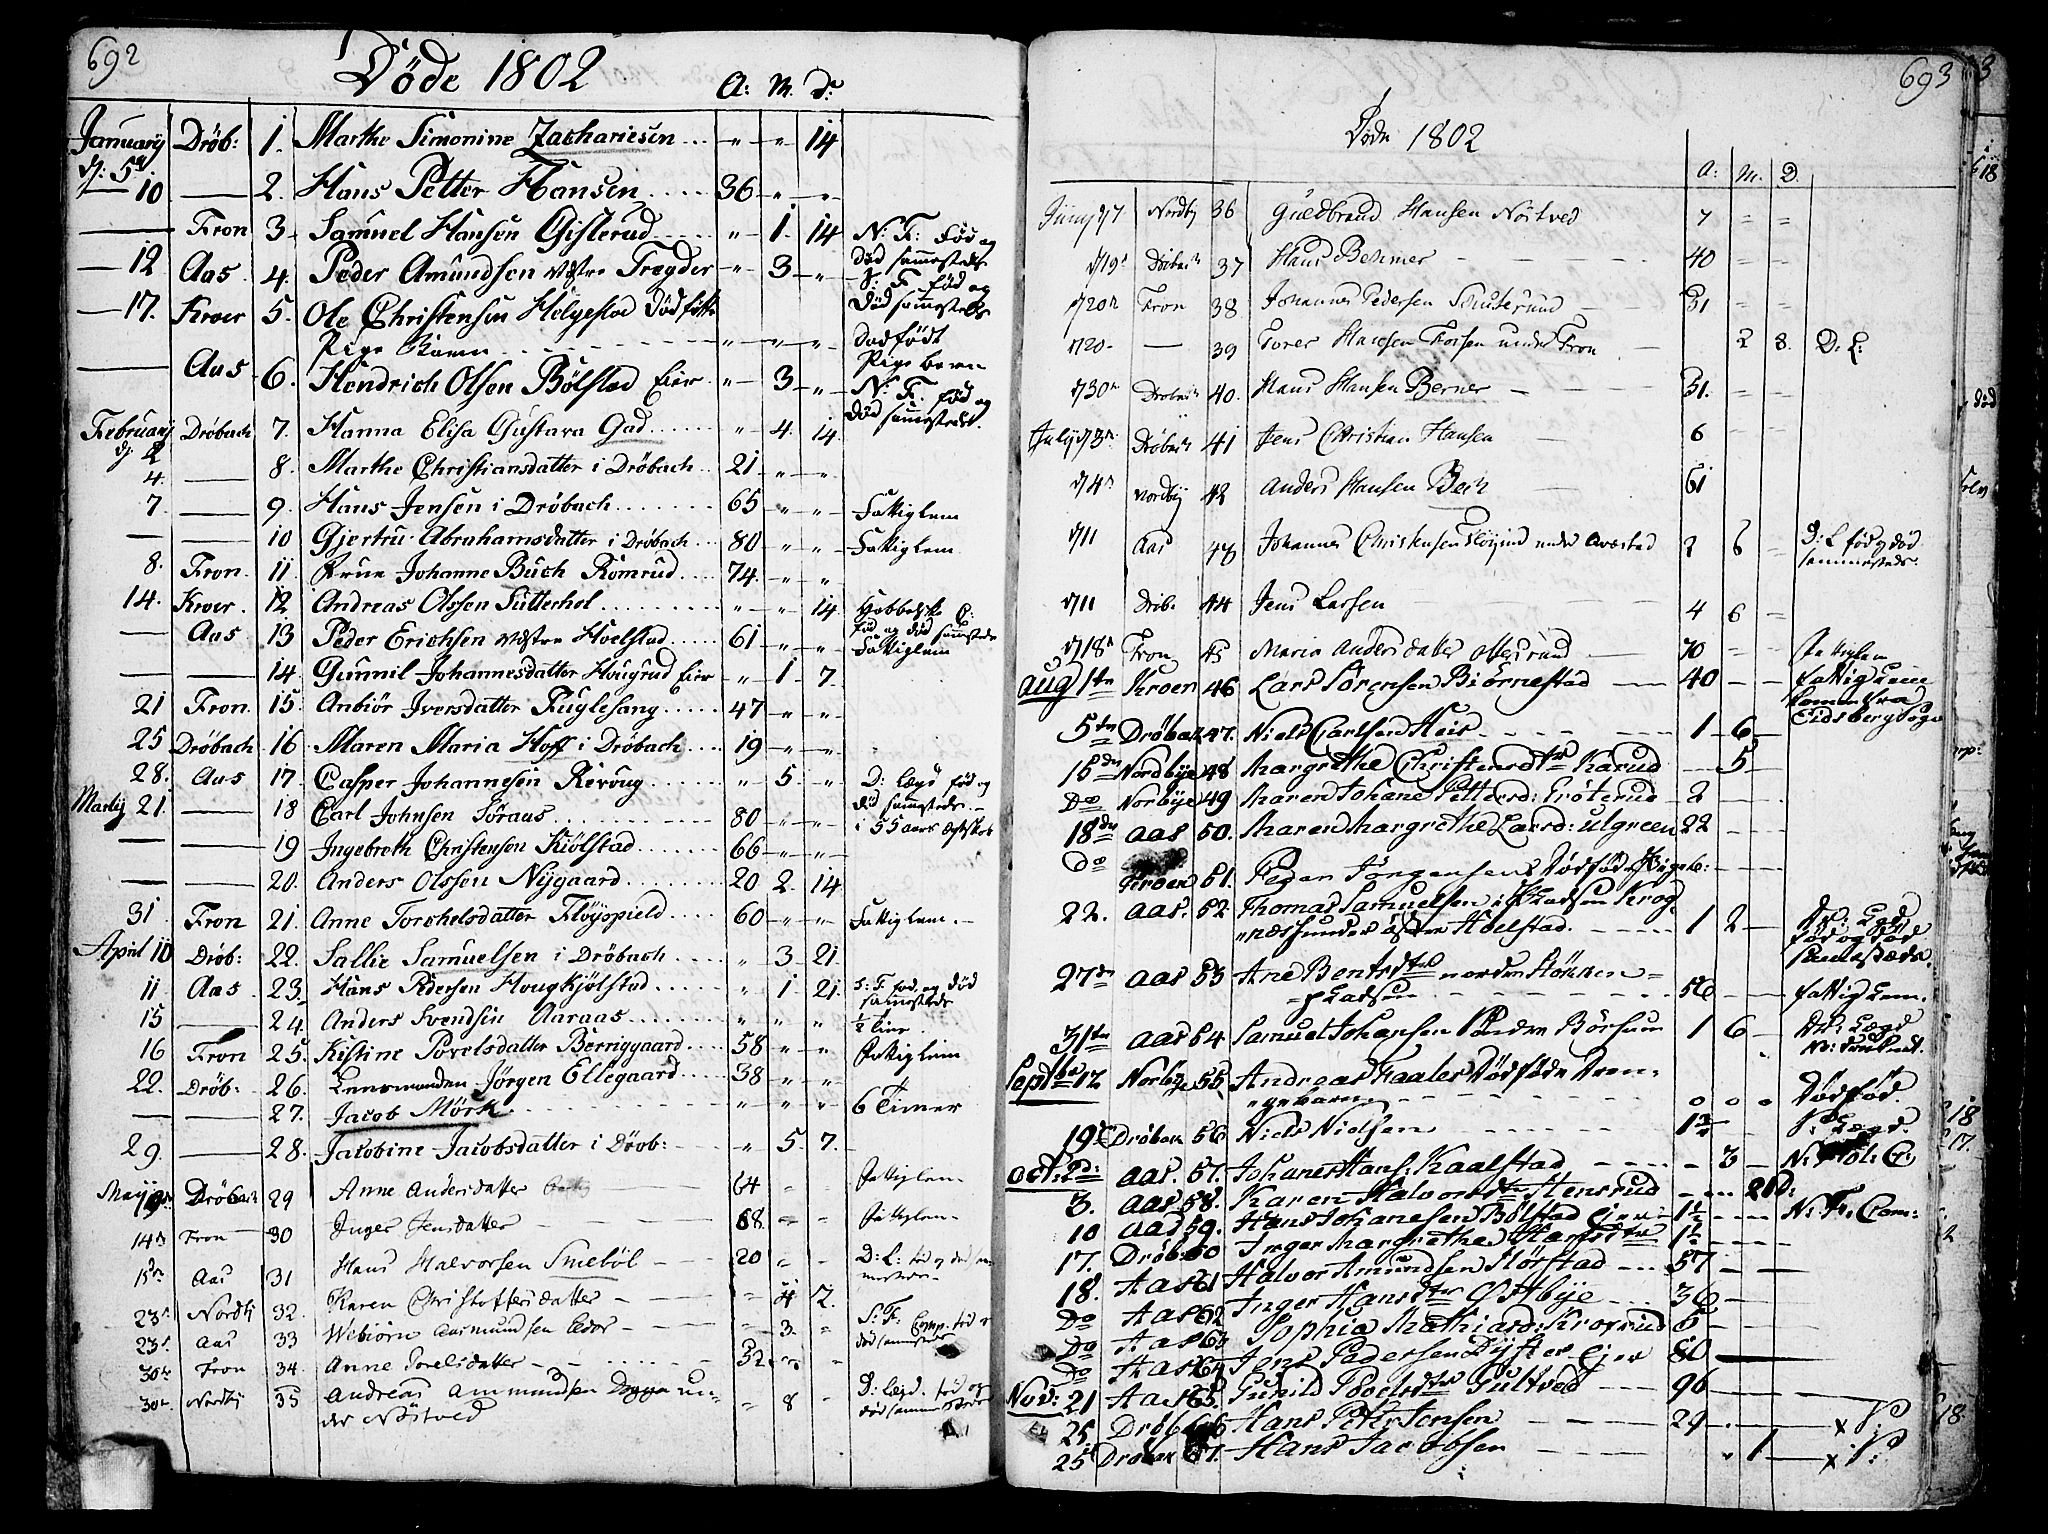 692
Döde 1802
A: M. D:
Januarij d: 5te Dröb: 1. Marthe Simonine Zachariesen " " 14
— 10 — 2. Hans Petter Hansen 36 " "
— Fron 3. Samuel Hansen Gislerud " 1 14 N: F: Fød og død sammesteds
— 12 Aas 4. Peder Amundsen Vestre Tregder " 3 " S: F. fød og død sammesteds
— 17. Kroer 5. Ole Christensen Helgestad Dödfött
Pige Barn " " " Dødfødt Pige barn
— Aas 6. Hendrich Olsen Bölstad Eier " 3 " N: F. fød og død sammesteds.
Februarij d: 2 Dröbach 7. Hanna Elisa Gustava Gad " 4. 14.
4. — 8. Marthe Christiansdatter i Dröbach 21 " "
7 — 9. Hans Jensen i Dröbach 65 " " Fattiglem
— — 10 Gjertru Abrahamsdatter i Dröbach 80 " " Fattiglem
8. Fron. 11. Frue Johanne Buch Römrud 74. " "
14. Kroer. 12 Andreas Olssen Sutterhol " " 14 fød og død sammesteds
— Aas 13 Peder Erichsen Vestre Hoelstad 61 " " Fattiglem
— — 14. Gunnil Johannesdatter Hougrud Eier " 1 7.
21 Fron. 15. Anbiör Iversdatter Fuglesang 47 " "
25 Dröbach 16. Maren Maria Hoff i Dröbach 19 " "
28. Aas 17. Casper Johannesen Revoug " 5. " D: Lægd fød og død sammesteds.
Martij 21. — 18 Carl Johnsen Söraas 80 " " i 55 aars Ægteskab
— — 19 Ingebreth Christensen Kiölstad 66 " "
— — 20. Anders Olssen Nygaard 20 2. 14
31. Fron 21. Anne Torchelsdatter Flöyspield 60 " " Fattiglem.
April 10 Dröb: 22. Sallie Samuelsen i Dröbach " 3 21
11 Aas 23. Hans Pedersen Hougkjölstad " 1 21. S: F. fød og død sammesteds
15 — 24. Anders Svendsen Aaraas " " " ½ time.
16 Fron 25. Kistine Povelsdatter Berniggaard 58 " " Fattiglem
22. Dröb: 26. Lensmanden Jörgen Ellegaard 38 " "
— — 27. Jacob Mörk " " " 6 Timer
29. — 28. Jacobine Jacobsdatter i Dröb: " 5. 7.
Maij Dröbach 29 Anne Andersdatter 64 = = Fattiglem
14d Fron 30 Inger Jensdatter 68. = = Fattiglem
15de Aas 31 Hans Halvorsen Smeböl 20 = = D: L: fød og død sammesteds
23d Nordby 32. Karen Christoffersdatter = 4 2. S. F.
23d Aas 33 Webiörn Aasmundsen " 3. = Comp. fød og død sammesteds
30te Fron 34. Anne Povelsdatter 52
30te Nordby 35 Andreas Ammundsen Dogga un-
der Nöstved = 8 - D: Lægd. fød og død sammesteds
693
Döde 1802
A: M. D.
Junj d 7 Nordbj 36 Guldbrand Hansen Nöstved 7 = =
d 19d Dröbach 37 Hans Behmer 40 = =
d 20d Fron 38 Johannes Pedersen Souterund 31 = =
d 20 — 39 Torer Hansen Forsen under Fron 2 8. D. L:
d 30te Dröbach 40. Hans Hansen Berner 31. = =
July d 3d Dröbach 41 Jens Christian Hansen 6 = =
d 4d Nordbÿ 42 Anders Hansen Bech 61
d 11 Aas 43 Johannes Christensen under 2 6 = D: L fød og død sammesteds.
d 11 Dröb. 44 Jens Larsen 4 6 =
d 18d Fron 45 Maria Andersdatter Ottersrund 70 = = Fattiglem
Aug 1te Kroen 46 Lars Sörensen Biörnestad 40 — — Fattig Lem kommen fra Eidsberg Sogn
5te Dröbak 47. Niels Carlsen Heis 1 6
15de Nordbye 48 Margrethe Christensdtr Karud — 5
Do Norbÿe 49 Maren Johane Pettersd: Fröterud 2
18de Aas 50. Maren Margrethe Larsd: Ulgreen 22
Do Kroen 51. Peder Jörgensen Dödföd Pigeb:
22. Aas. 52 Thomas Samuelsen i Pladsen Krog-
næs under östre Hoelstad. 1 2 — Dr: Lægd. fød og død samestæder.
27de Aas 53 Ane Bentsdtr norden Störken
Pladsen 56 — — Fattig Lem.
31te Aas 54 Samuel Johansen Söndre Börsum 1 6 Dr: Lægd
Septbr 12 Norbye 55. Andreas Faales Dödföde Dren-
gebarn o o o Dödföd.
19de Dröbak 56 Niels Nielsen 1½ Lægd.
Oct: 2d: Aas. 57. Johanes Hans: Kaalstad — 3 —
3. Aas 58. Karen Halvorsdtr Stensrud — — 21d:
10 Aas 59. Hans Johanesen Bölstad Ejer 1½ N: F. Com:
17. Dröb 60 Inger Margrethe Hansdtr 1½
18. Aas 61 Halvor Amundsen Störstad 57
Do Aas 62 Inger Hansdtr Östbye 36
Do Aas 63 Sophia Mathiasd: Kroxrud 6
Do Aas 64 Jens Pedersen Dyster Ejer 80
Nov: 21 Aas 65. Gunild Povelsdtr Gultved 96
25. Dröb 66 Hans Peter Jensen 29
25 Dröbak 67. Hans Jacobsen " 1